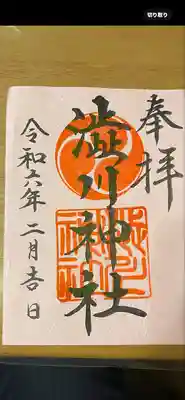 切り取り
奉拝
澁川神社
令和六年二月吉日